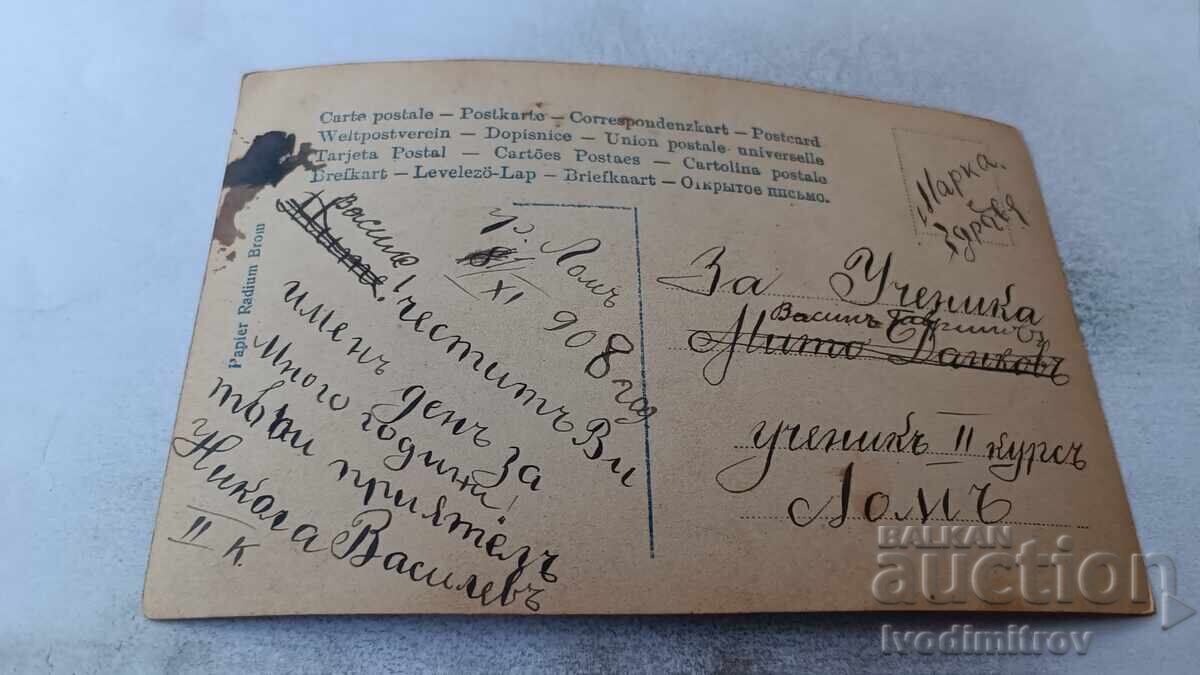 Carte postale – Postkarte – Correspondenzkart – Postcard
Weltpostverein – Dopisnice – Union postale universelle
Tarjeta Postal – Cartões Postaes – Cartolina postale
Brefkart – Levelező-Lap – Briefkaart – Открытое письмо.
Papier Radium Brom
Марка.
гр. Ломъ
XI
908 год
Василе!
честитъ Ви
именъ денъ За
Много години!
приятелъ
Никола Василевъ
II к.
За Ученика
Василъ
Мито Данковъ
ученикъ II курсъ
Ломъ
BALKAN
auction
Ivodimitrov